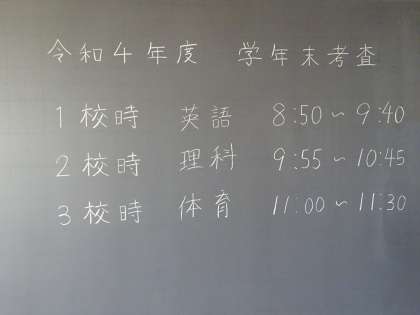 令和4年度 学年末考査
1校時 英語 8:50～9:40
2校時 理科 9:55～10:45
3校時 体育 11:00～11:30